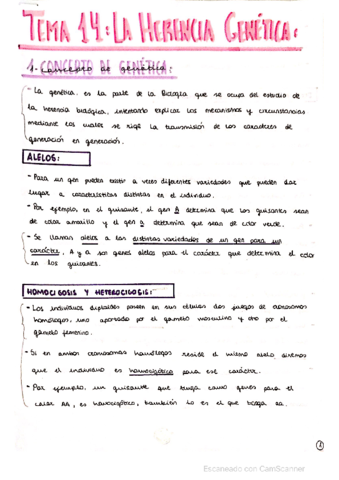 TEMA 14: LA HERENCIA GENÉTICA:
1- CONCEPTO DE GENÉTICA:
- La genética es la parte de la Biología que se ocupa del estudio de
la herencia biológica, intentando explicar los mecanismos y circunstancias
mediante los cuales se rige la transmisión de los caracteres de
generación en generación.
ALELOS:
- Para un gen pueden existir a veces diferentes variedades que pueden dar
lugar a características distintas en el individuo.
- Por ejemplo, en el guisante, el gen A determina que los guisantes sean
de color amarillo y el gen a determina que sean de color verde.
- Se llaman alelos a las distintas variedades de un gen para un
carácter. A y a son genes alelos para el carácter que determina el color
en los guisantes.
HOMOCIGOSIS Y HETEROCIGOSIS:
- Los individuos diploides poseen en sus células dos juegos de cromosomas
homólogos, uno aportado por el gameto masculino y otro por el
gameto femenino.
- Si en ambos cromosomas homólogos reside el mismo alelo diremos
que el individuo es homocigótico para ese carácter.
- Por ejemplo, un guisante que tenga como genes para el
color AA, es homocigótico, también lo es el que tenga aa.
1
Escaneado con CamScanner